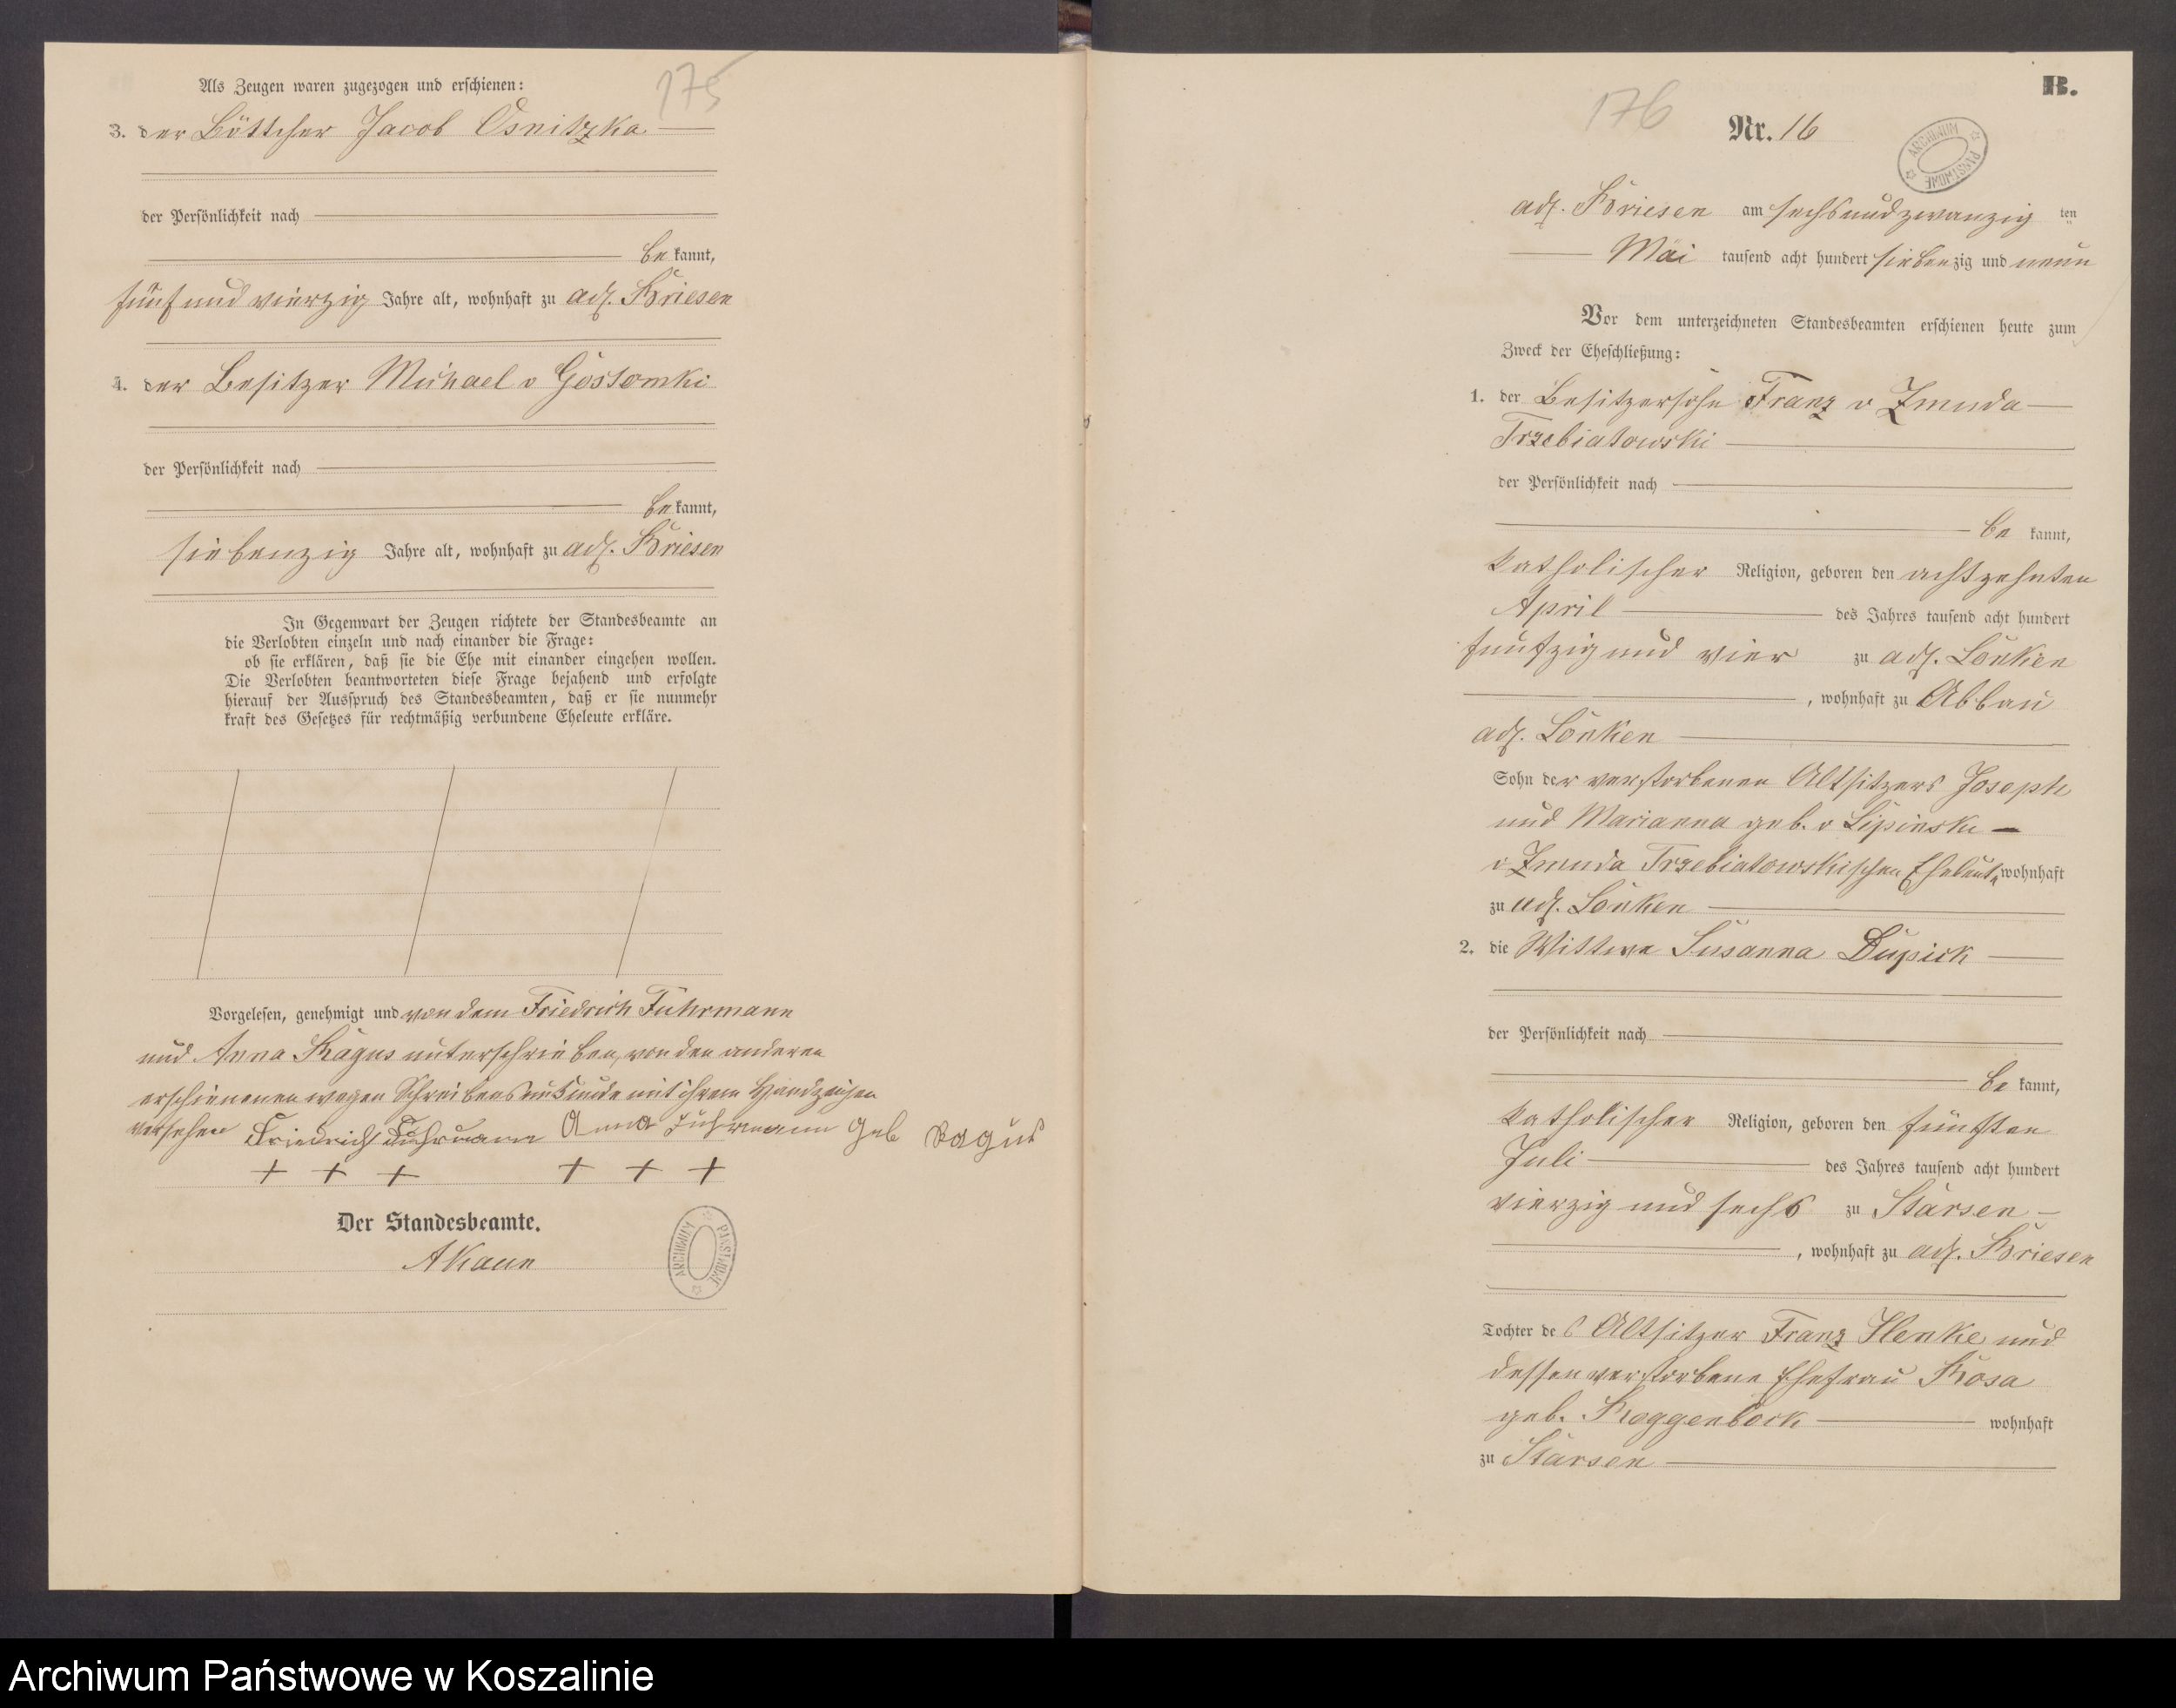 175
Als Zeugen waren zugezogen und erschienen:
3. der Böttcher Jacob Osnitzka
der Persönlichkeit nach
be kannt,
fünf und vierzig Jahre alt, wohnhaft zu adl. Briesen
4. der Besitzer Michael v Gostomki
der Persönlichkeit nach
be kannt,
siebenzig Jahre alt, wohnhaft zu adl. Briesen
In Gegenwart der Zeugen richtete der Standesbeamte an
die Verlobten einzeln und nach einander die Frage:
ob sie erklären, daß sie die Ehe mit einander eingehen wollen.
Die Verlobten beantworteten diese Frage bejahend und erfolgte
hierauf der Ausspruch des Standesbeamten, daß er sie nunmehr
kraft des Gesetzes für rechtmäßig verbundene Eheleute erkläre.
Vorgelesen, genehmigt und von dem Friedrich Fuhrmann
und Anna Ragus unterschrieben, von den anderen
erschienenen wegen Schreibensunkunde mit ihrem Handzeichen
versehen Friedrich Fuhrmann Anna Fuhrmann Geb Ragus
+ + + + + +
Der Standesbeamte.
AKaun
ARCHIWUM PAŃSTWOWE
176
B.
Nr. 16
ARCHIWUM PAŃSTWOWE
adl. Briesen am sechsundzwanzig ten
Mai tausend acht hundert siebenzig und neun
Vor dem unterzeichneten Standesbeamten erschienen heute zum
Zweck der Eheschließung:
1. der Besitzersohn Franz v Zmuda
Trzebiatowski
der Persönlichkeit nach
be kannt,
katholischer Religion, geboren den achtzehnten
April des Jahres tausend acht hundert
funfzig und vier zu adl. Lonken
, wohnhaft zu Abbau
adl. Lonken
Sohn der verstorbenen Altsitzers Joseph
und Marianna geb. v Lipinski
v Zmuda Trzebiatowskischen Eheleute wohnhaft
zu adl. Lonken
2. die Wittwe Susanna Dupick
der Persönlichkeit nach
be kannt,
katholischer Religion, geboren den fünften
Juli des Jahres tausend acht hundert
vierzig und sechs zu Starsen
, wohnhaft zu adl. Briesen
Tochter des Altsitzer Franz Ilenke und
dessen verstorbene Ehefrau Rosa
geb. Roggenbock wohnhaft
zu Starsen
Archiwum Państwowe w Koszalinie